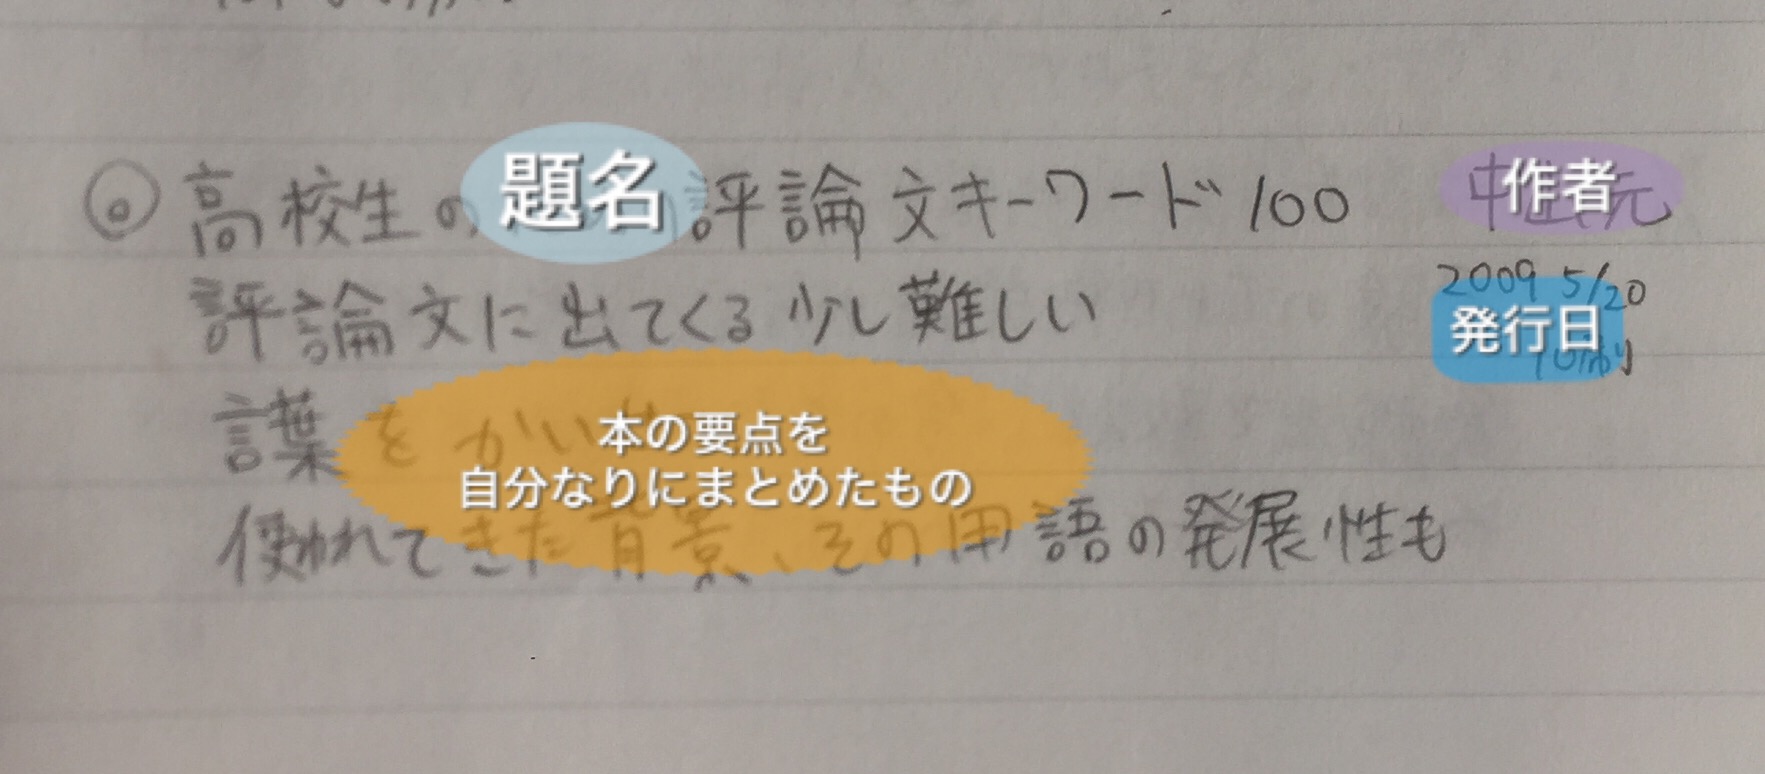 ◎ 高校生の 題名 評論文キーワード100 作者
評論文に出てくる少し難しい 2009 5/20
発行日
言葉を かい 本の要点を
自分なりにまとめたもの
使われてきた背景、その用語の発展性も